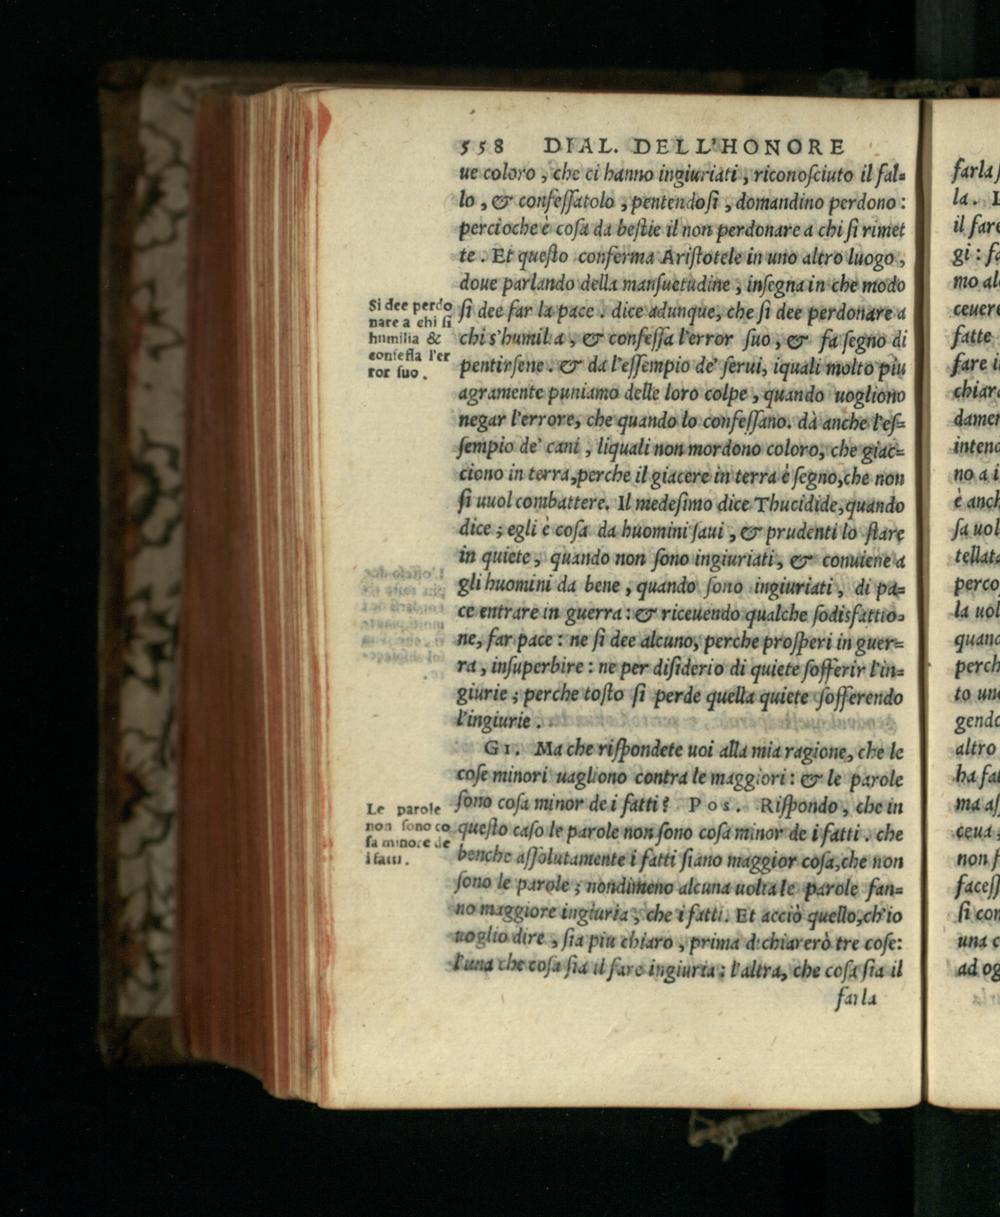 558 DIAL. DELL'HONORE
ue coloro, che ci hanno ingiuriati, riconoſciuto il fal-
lo, & confeſſatolo, pentendoſi, domandino perdono:
percioche è coſa da beſtie il non perdonare a chi ſi rimet
te. Et queſto conferma Ariſtotele in uno altro luogo,
doue parlando della manſuetudine, inſegna in che modo
ſi dee far la pace. dice adunque, che ſi dee perdonare a
chi s'humilia, & confeſſa l'error ſuo, & fa ſegno di
pentirſene. & da l'eſſempio de' ſerui, iquali molto più
agramente puniamo delle loro colpe, quando uogliono
negar l'errore, che quando lo confeſſano. dà anche l'eſ-
ſempio de' cani, liquali non mordono coloro, che giac-
ciono in terra, perche il giacere in terra è ſegno, che non
ſi uuol combattere. Il medeſimo dice Thucidide, quando
dice; egli è coſa da huomini ſaui, & prudenti lo ſtare
in quiete, quando non ſono ingiuriati, & conuiene a
gli huomini da bene, quando ſono ingiuriati, di pa-
ce entrare in guerra: & riceuendo qualche ſodisfattio-
ne, far pace: ne ſi dee alcuno, perche proſperi in guer-
ra, inſuperbire: ne per diſiderio di quiete ſofferir l'in-
giurie; perche toſto ſi perde quella quiete ſofferendo
l'ingiurie.
GI. Ma che riſpondete uoi alla mia ragione, che le
coſe minori uagliono contra le maggiori: & le parole
ſono coſa minor de i fatti? POS. Riſpondo, che in
queſto caſo le parole non ſono coſa minor de i fatti. che
benche aſſolutamente i fatti ſiano maggior coſa, che non
ſono le parole; nondimeno alcuna uolta le parole fan-
no maggiore ingiuria, che i fatti. Et acciò quello, ch'io
uoglio dire, ſia piu chiaro, prima dichiarerò tre coſe:
l'una che coſa ſia il fare ingiuria: l'altra, che coſa ſia il
farla
Si dee perdo
nare a chi ſi
humilia &
confeſſa l'er
ror ſuo.
Le parole
non ſono co
ſa minore de
i fatti.
farla
la.
il fare
gi: fa
mo al
ceuere
fatte
fare i
chiar
damen
intend
no a i
è anch
ſa uol
tellata
perco
la uol
quand
perch
to un
gendo
altro
ha fa
ma aſ
ceua,
non f
faceſſ
ſi con
una c
ad og